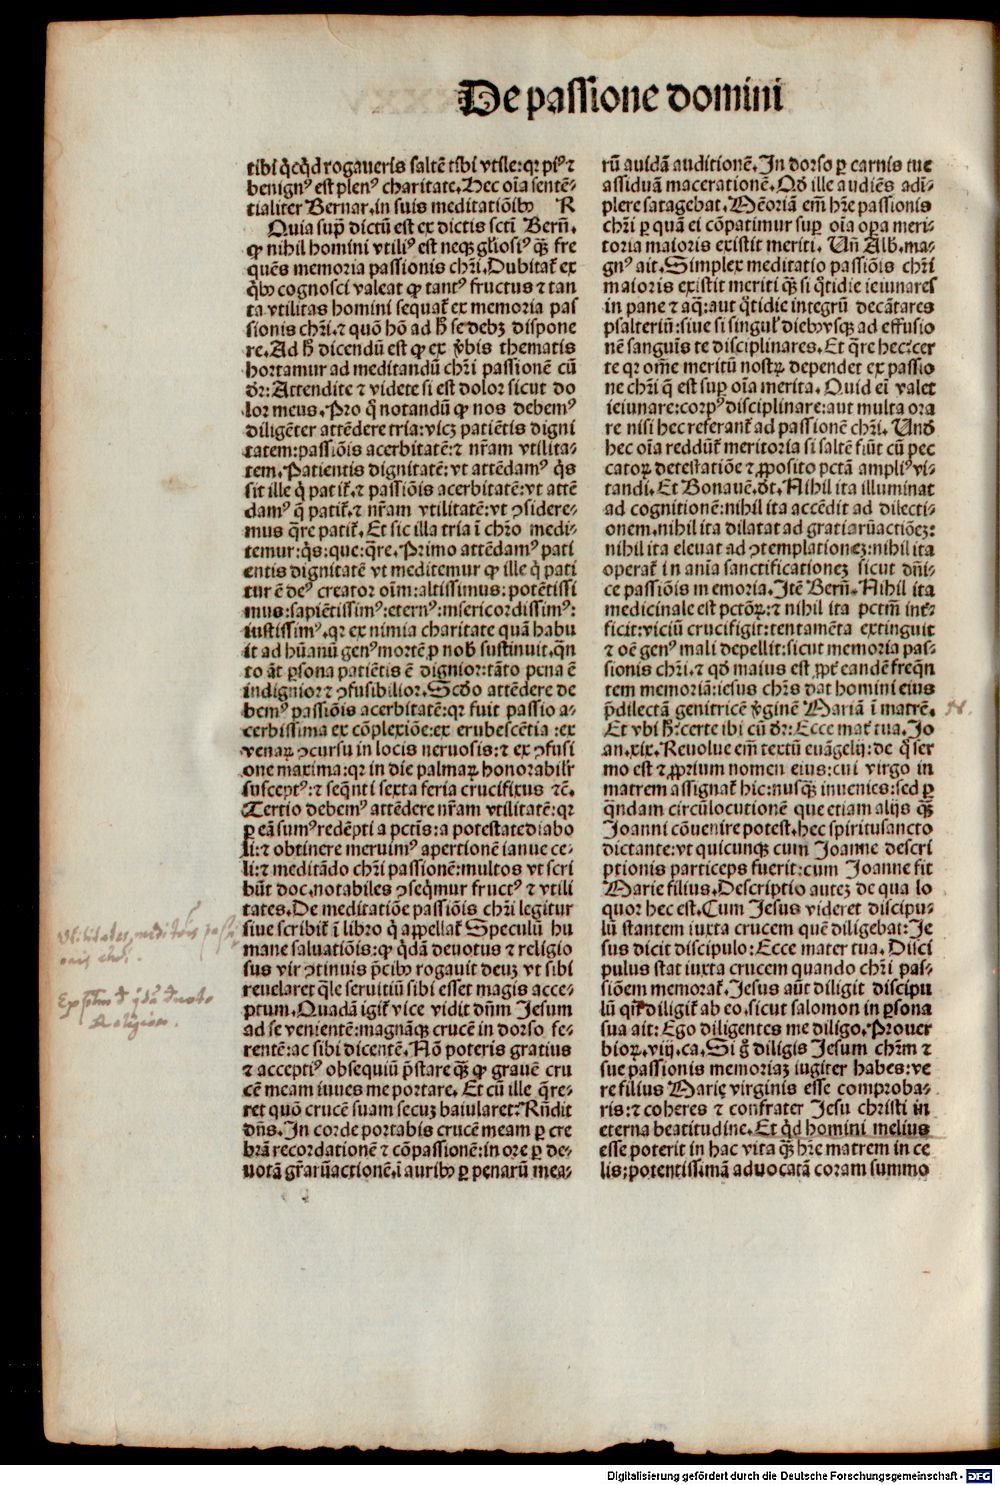 De passione domini
tibi q̇cq̇d rogaueris saltē tibi vtile: qꝛ piꝰ ⁊
benignꝰ est plenꝰ charitate. Hec oīa sentē-
tialiter Bernar. in suis meditatiōibꝰ R
Quia supᷓ dictū est ex dictis scti Bern̄.
ꝙ nihil homini vtiliꝰ est neqꝫ gl'iosiꝰ qᷓꝫ fre
quēs memoria passionis chr̄i. Dubitat᷑ ex
q̇bꝰ cognosci valeat ꝙ tantꝰ fructus ⁊ tan
ta vtilitas homini sequat᷑ ex memoria pas
sionis chr̄i. ⁊ quō hō ad h̄ se debꝫ dispone
re. Ad h̄ dicendū est ꝙ ex v̓bis thematis
hortamur ad meditandū chr̄i passionē cū
dr̄: Attendite ⁊ videte si est dolor sicut do
lor meus. Pro q̊ notandū ꝙ nos debemꝰ
diligēter attēdere tria: vicꝫ patiētis digni
tatem: passiōis acerbitatē: ⁊ nr̄am vtilita-
tem. Patientis dignitatē: vt attēdamꝰ q̇s
sit ille q̇ patit᷑. ⁊ passiōis acerbitatē: vt attē
damꝰ q̄ patit᷑. ⁊ nr̄am vtilitatē: vt ꝯsidere-
mus q̄re patit᷑. Et sic illa tria ī chr̄o medi-
temur: q̇s: que: q̄re. Primo attēdamꝰ pati
entis dignitatē vt meditemur ꝙ ille q̇ pati
tur ē deꝰ creator oīm: altissimus: potētissi
mus: sapiētissimꝰ: eternꝰ: misericordissimꝰ:
iustissimꝰ. qꝛ ex nimia charitate quā habu
it ad hūanū genꝰ mortē ꝓ nob̄ sustinuit. qn̄
to āt ꝑsona patiētis ē dignior: tāto pena ē
indignior ⁊ ꝯfusibilior. Scd̄o attēdere de
bemꝰ passiōis acerbitatē: qꝛ fuit passio a-
cerbissima ex cōplexiōe: ex erubescētia: ex
venaꝝ ꝯcursu in locis neruosis: ⁊ ex ꝯfusi
one maxima: qꝛ in die palmaꝝ honorabilr̄
susceptꝰ: ⁊ seqn̄ti sexta feria crucifixus ⁊c̄.
Tertio debemꝰ attēdere nr̄am vtilitatē: qꝛ
ꝑ eā sumꝰ redēpti a pctīs: a potestate diabo
li: ⁊ obtinere meruimꝰ apertionē ianue ce-
li: ⁊ meditādo chr̄i passionē: multos vt scri
būt doc. notabiles ꝯseq̄mur fructꝰ ⁊ vtili
tates. De meditatiōe passiōis chr̄i legitur
siue scribit᷑ ī libro q̇ appellat᷑ Speculū hu
mane saluatiōis: ꝙ q̇dā deuotus ⁊ religio
sus vir ꝯtinuis p̄cibꝰ rogauit deuꝫ vt sibi
reuelaret q̄le seruitiū sibi esset magis acce-
ptum. Quadā igit᷑ vice vidit dn̄m Jesum
ad se venientē: magnāqꝫ crucē in dorso fe-
rentē: ac sibi dicentē. Nō poteris gratius
⁊ acceptiꝰ obsequiū p̄stare qᷓꝫ ꝙ grauē cru
cē meam iuues me portare. Et cū ille q̄re-
ret quō crucē suam secuꝫ baiularet: Rn̄dit
dn̄s. In corde portabis crucē meam ꝑ cre
brā recordationē ⁊ cōpassionē: in ore ꝑ de-
uotā gr̄arū actionē. ī auribꝰ ꝑ penarū mea-
rū auidā auditionē. In dorso ꝑ carnis tue
assiduā macerationē. Qd̄ ille audiēs adī-
plere satagebat. Mēoriā em̄ hr̄e passionis
chr̄i ꝑ quā ei cōpatimur suꝑ oīa oꝑa meri-
toria maioris existit meriti. Un̄ Alb. ma-
gnꝰ ait. Simplex meditatio passiōis chr̄i
maioris existit meriti qᷓꝫ si q̊tidie ieiunares
in pane ⁊ aq̄: aut q̊tidie integrū decātares
psalteriū: siue si singul' diebꝰ vsqꝫ ad effusio
nē sanguīs te disciplinares. Et q̄re hec: cer
te qꝛ om̄e meritū nostꝝ dependet ex passio
ne chr̄i q̄ est suꝑ oīa merita. Quid ei valet
ieiunare: corpꝰ disciplinare: aut multa ora
re nisi hec referant᷑ ad passionē chr̄i. Und̄
hec oīa reddūt᷑ meritoria si saltē fiūt cū pec
catoꝝ detestatiōe ⁊ ꝓposito pctā ampliꝰ vi-
tandi. Et Bonauē. dt̄. Nihil ita illuminat
ad cognitionē: nihil ita accēdit ad dilecti-
onem. nihil ita dilatat ad gratiarū actiōeꝫ:
nihil ita eleuat ad ꝯtemplationeꝫ: nihil ita
operat᷑ in anīa sanctificationeꝫ sicut dn̄i-
ce passiōis memoria. Itē Bern̄. Nihil ita
medicinale est pctōꝝ: ⁊ nihil ita pctm̄ inter-
ficit: viciū crucifigit: tentamēta extinguit
⁊ oē genꝰ mali depellit: sicut memoria pas-
sionis chr̄i. ⁊ qd̄ maius est ꝓpt̓ eandē freqn̄
tem memoriā: iesus chr̄s dat homini eius
p̄dilectā genitricē v̓ginē Mariā ī matrē.
Et vbi h̄: certe ibi cū dr̄: Ecce mat̓ tua. Jo
an. xix. Reuolue em̄ textū euāgelij: de q̊ ser
mo est ⁊ ꝓprium nomen eius: cui virgo in
matrem assignat᷑ hic: nusqᷓꝫ inuenies: sed ꝑ
qn̄dam circūlocutionē que etiam alijs qᷓꝫ
Joanni cōuenire potest. hec spiritusancto
dictante: vt quicunqꝫ cum Joanne descri
ptionis particeps fuerit: cum Joanne fit
Marie filius. Descriptio auteꝫ de qua lo
quor hec est. Cum Jesus videret discipu-
lū stantem iuxta crucem quē diligebat: Je
sus dicit discipulo: Ecce mater tua. Disci
pulus stat iuxta crucem quando chr̄i pas-
siōem memorat᷑. Jesus aūt diligit discipu
lū qn̄ diligit᷑ ab eo. sicut salomon in ꝑsona
sua ait: Ego diligentes me diligo. Prouer
bioꝝ. viij. ca. Si gͦ diligis Jesum chr̄m ⁊
sue passionis memoriaꝫ iugiter habes: ve
re filius Marię virginis esse comproba-
ris: ⁊ coheres ⁊ confrater Jesu christi in
eterna beatitudine. Et q̇d homini melius
esse poterit in hac vita qᷓꝫ hr̄e matrem in ce
lis: potentissimā aduocatā coram summo
Digitalisierung gefördert durch die Deutsche Forschungsgemeinschaft - DFG